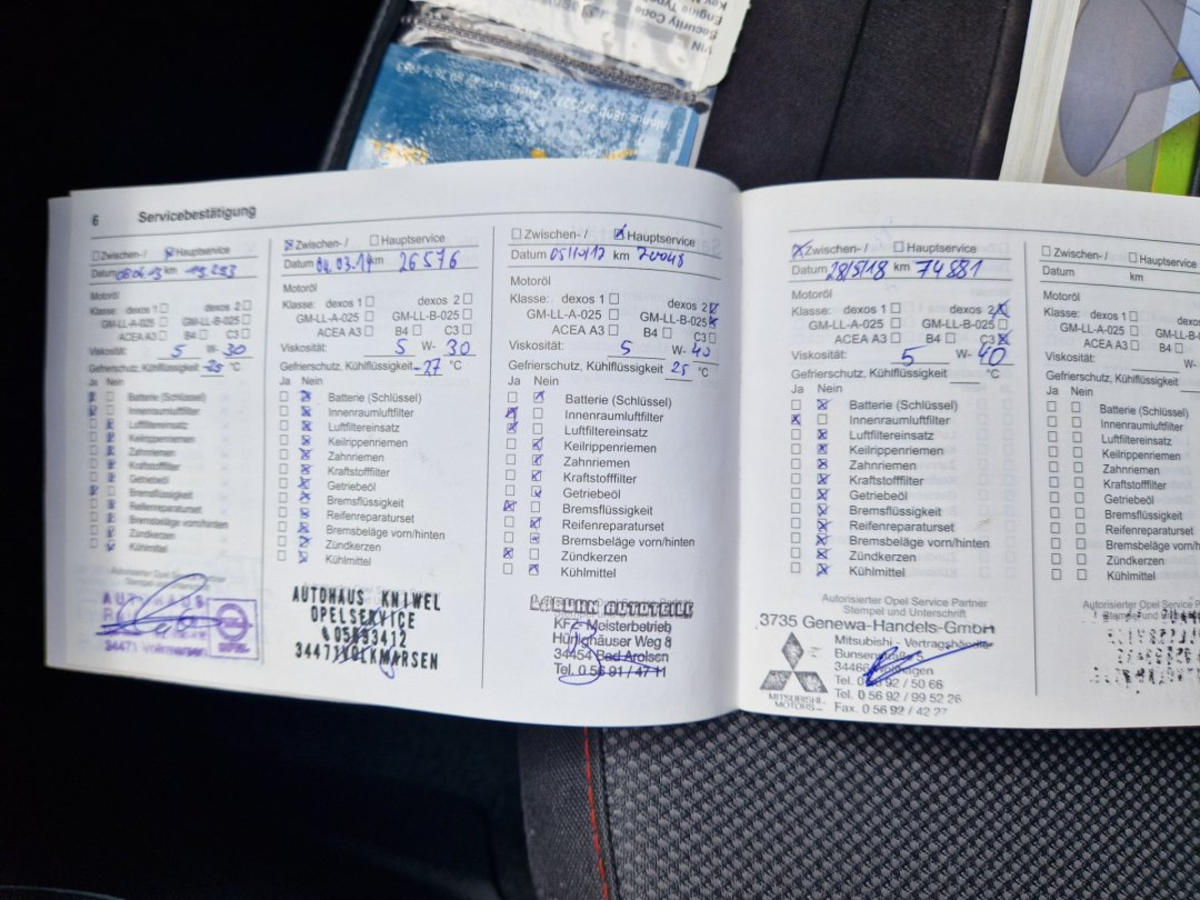 VIN
Security Code
6 Servicebestätigung
Zwischen- / Hauptservice
Datum km 19 293
Motoröl
Klasse: dexos 1 dexos 2
GM-LL-A-025 GM-LL-B-025
ACEA A3 B4 C3
Viskosität: 5 W- 30
Gefrierschutz, Kühlflüssigkeit -25 °C
Ja Nein
Batterie (Schlüssel)
Innenraumluftfilter
Luftfiltereinsatz
Keilrippenriemen
Zahnriemen
Kraftstofffilter
Getriebeöl
Bremsflüssigkeit
Reifenreparaturset
Bremsbeläge vorn/hinten
Zündkerzen
Kühlmittel
Autorisierter Opel Service Partner
AUTOHAUS
34471 Volkmarsen
Zwischen- / Hauptservice
Datum 04.03.14 km 26576
Motoröl
Klasse: dexos 1 dexos 2
GM-LL-A-025 GM-LL-B-025
ACEA A3 B4 C3
Viskosität: 5 W- 30
Gefrierschutz, Kühlflüssigkeit -27 °C
Ja Nein
Batterie (Schlüssel)
Innenraumluftfilter
Luftfiltereinsatz
Keilrippenriemen
Zahnriemen
Kraftstofffilter
Getriebeöl
Bremsflüssigkeit
Reifenreparaturset
Bremsbeläge vorn/hinten
Zündkerzen
Kühlmittel
AUTOHAUS KNIWEL
OPELSERVICE
34471 VOLKMARSEN
Zwischen- / Hauptservice
Datum 05/10/17 km 70048
Motoröl
Klasse: dexos 1 dexos 2
GM-LL-A-025 GM-LL-B-025
ACEA A3 B4 C3
Viskosität: 5 W- 40
Gefrierschutz, Kühlflüssigkeit 25 °C
Ja Nein
Batterie (Schlüssel)
Innenraumluftfilter
Luftfiltereinsatz
Keilrippenriemen
Zahnriemen
Kraftstofffilter
Getriebeöl
Bremsflüssigkeit
Reifenreparaturset
Bremsbeläge vorn/hinten
Zündkerzen
Kühlmittel
AUTOTEILE
KFZ-Meisterbetrieb
Hünighäuser Weg 8
34454 Bad Arolsen
Tel. 0 56 91 / 47 11
Zwischen- / Hauptservice
Datum 28/5/18 km 74881
Motoröl
Klasse: dexos 1 dexos 2
GM-LL-A-025 GM-LL-B-025
ACEA A3 B4 C3
Viskosität: 5 W- 40
Gefrierschutz, Kühlflüssigkeit °C
Ja Nein
Batterie (Schlüssel)
Innenraumluftfilter
Luftfiltereinsatz
Keilrippenriemen
Zahnriemen
Kraftstofffilter
Getriebeöl
Bremsflüssigkeit
Reifenreparaturset
Bremsbeläge vorn/hinten
Zündkerzen
Kühlmittel
Autorisierter Opel Service Partner
Stempel und Unterschrift
3735 Genewa-Handels-GmbH
Mitsubishi - Vertragshändler
MITSUBISHI
MOTORS
Tel. 0 56 92 / 50 66
Tel. 0 56 92 / 99 52 26
Fax. 0 56 92 / 42 27
Zwischen- / Hauptservice
Datum km
Motoröl
Klasse: dexos 1
GM-LL-A-025 GM-LL-B-0
ACEA A3 B4
Viskosität: W-
Gefrierschutz, Kühlflüssigkeit
Ja Nein
Batterie (Schlüssel)
Innenraumluftfilter
Luftfiltereinsatz
Keilrippenriemen
Zahnriemen
Kraftstofffilter
Getriebeöl
Bremsflüssigkeit
Reifenreparaturset
Bremsbeläge vorn/hinten
Zündkerzen
Kühlmittel
Autorisierter Opel Service